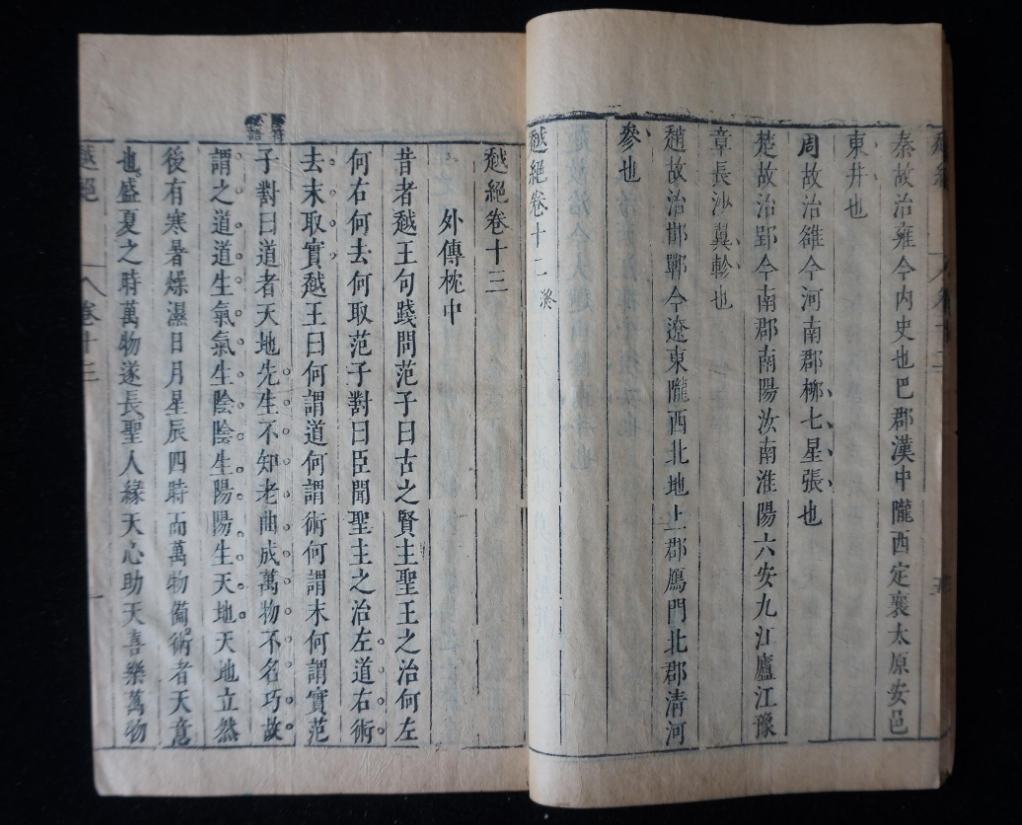 秦故治雍今內史也巴郡漢中隴西定襄太原安邑
東井也
周故治雒今河南郡栁七星張也
楚故治郢今南郡南陽汝南淮陽六安九江廬江豫
章長沙翼軫也
趙故治邯鄲今遼東隴西北地上郡鴈門北郡清河
參也
越絕卷十二
越絕卷十三
外傳枕中
昔者越王句踐問范子曰古之賢主聖王之治何左
何右何去何取范子對曰臣聞聖主之治左道右術
去末取實越王曰何謂道何謂術何謂末何謂實范
子對曰道者天地先生不知老曲成萬物不名巧故
謂之道道生氣氣生陰陰生陽陽生天地天地立然
後有寒暑燥濕日月星辰四時而萬物備術者天意
也盛夏之時萬物遂長聖人緣天心助天喜樂萬物
越絕
卷十三